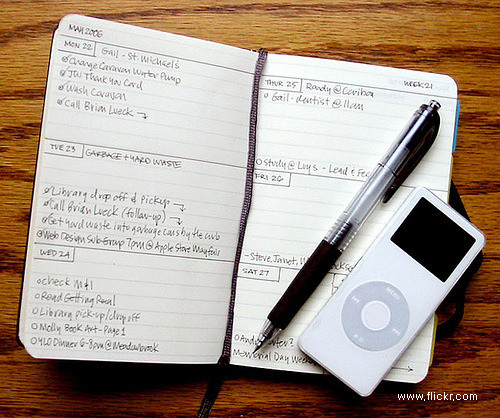 MAY 2006
MON 22 Gail - St. Michael's
Change Caravan Water Pump
JW Thank You Card
Wash Caravan
Call Brian Lueck →
TUE 23 GARBAGE + YARD WASTE
Library drop off & pickup →
Call Brian Lueck (follow-up) →
Get yard waste into garbage cans by the curb
Web Design Sub-Group 7pm @ Apple Store Mayfair
WED 24
check M&I
Read Getting Real
Library pick-up/drop off
Molly Book Art - Page 1
YLO Dinner 6-8pm @ Meadowbrook
THUR 25 Randy @ Caribou WEEK 21
Gail - dentist @ 11am
study @ Luy's - Lead &
FRI 26
- Steve, Janet,
SAT 27
Memorial Day Week
MENU
www.flickr.com